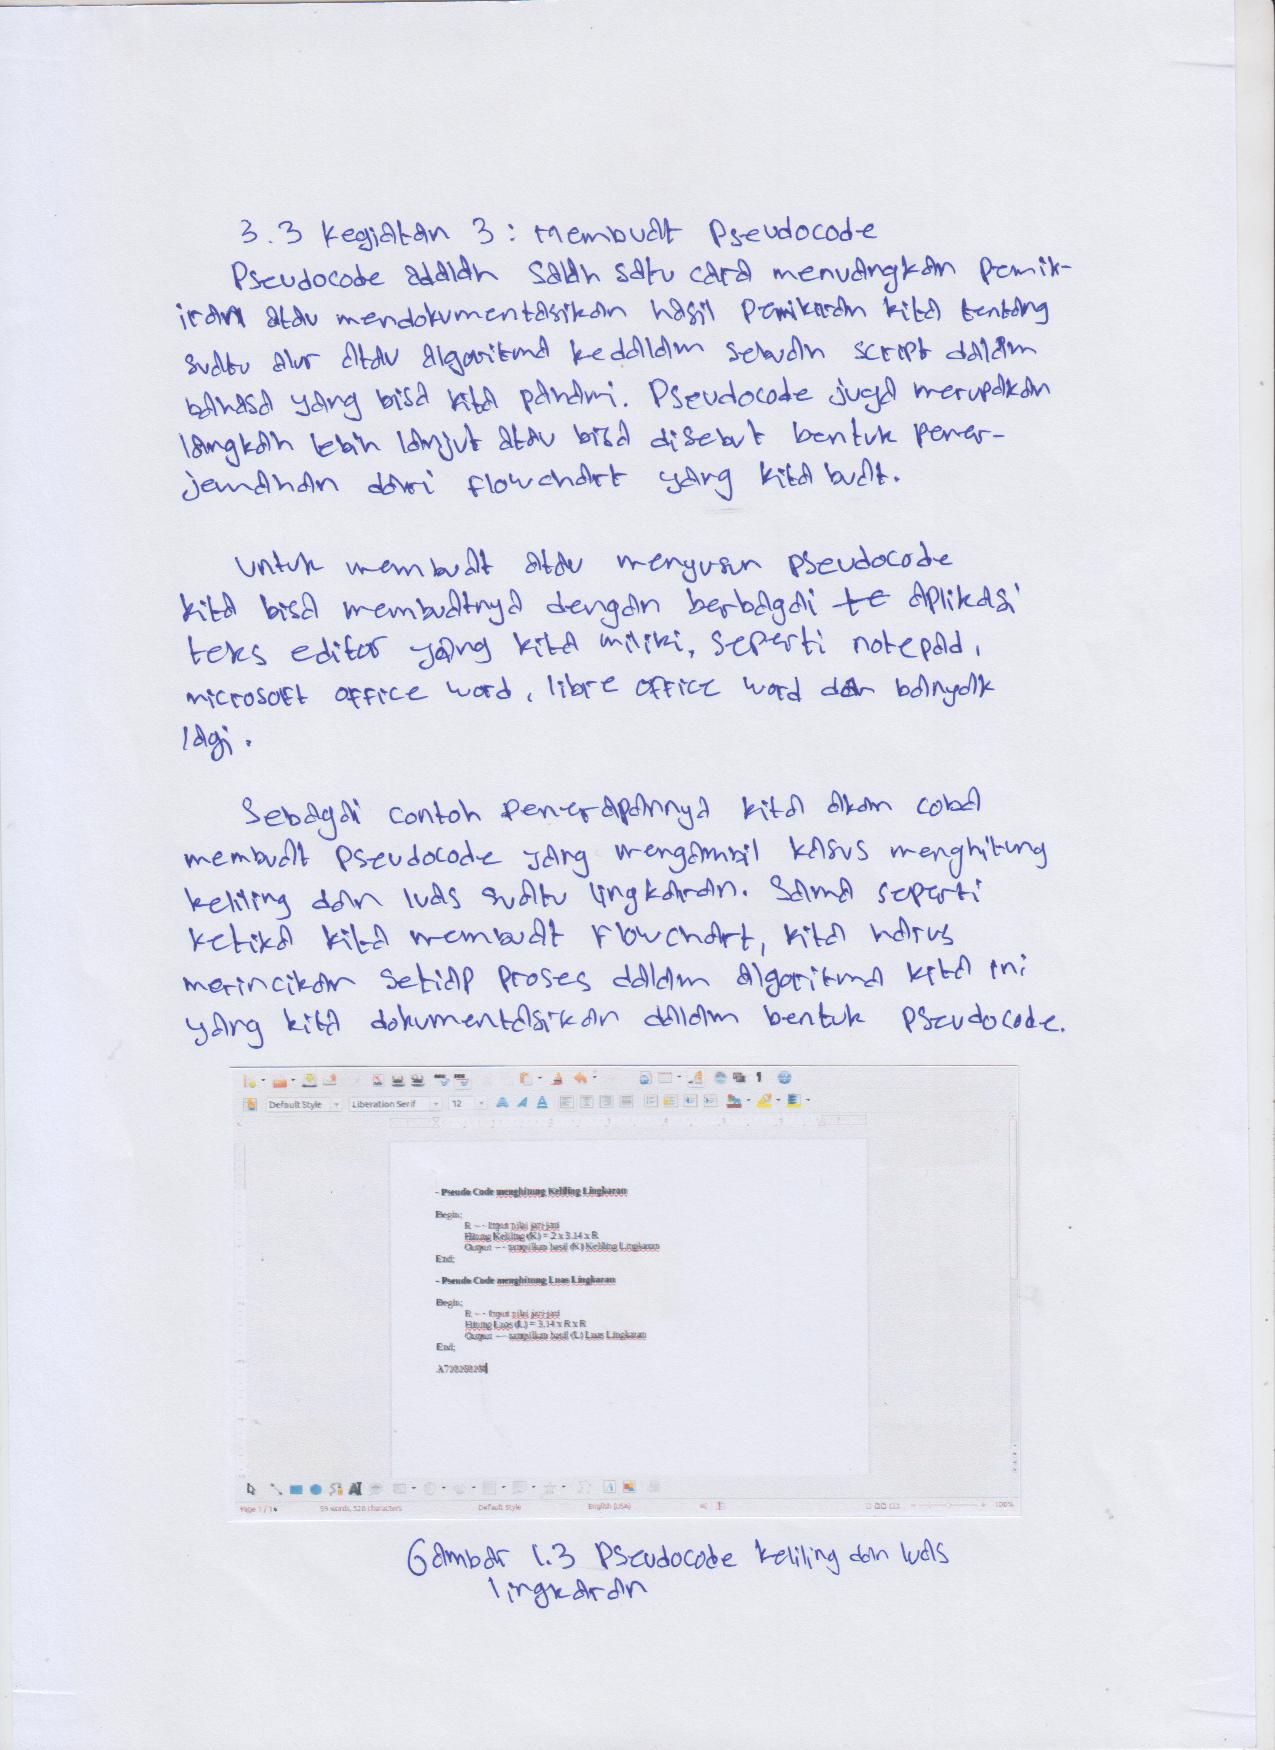 3.3 Kegiatan 3 : Membuat Pseudocode
Pseudocode adalah salah satu cara menuangkan pemik-
iran atau mendokumentasikan hasil pemikiran kita tentang
suatu alur atau algoritma kedalam sebuah script dalam
bahasa yang bisa kita pahami. Pseudocode juga merupakan
langkah lebih lanjut atau bisa disebut bentuk pener-
jemahan dari flowchart yang kita buat.
Untuk membuat atau menyusun pseudocode
kita bisa membuatnya dengan berbagai te aplikasi
teks editor yang kita miliki, seperti notepad,
microsoft office word, libre office word dan banyak
lagi.
Sebagai contoh penerapannya kita akan coba
membuat pseudocode yang mengambil kasus menghitung
keliling dan luas suatu lingkaran. Sama seperti
ketika kita membuat flowchart, kita harus
merincikan setiap proses dalam algoritma kita ini
yang kita dokumentasikan dalam bentuk pseudocode.
Default Style Liberation Serif 12
- Pseudo Code menghitung Keliling Lingkaran
Begin;
R --- Input nilai jari-jari
Hitung Keliling (K) = 2 x 3.14 x R
Output --- tampilkan hasil (K) Keliling Lingkaran
End;
- Pseudo Code menghitung Luas Lingkaran
Begin;
R --- Input nilai jari-jari
Hitung Luas (L) = 3.14 x R x R
Output --- tampilkan hasil (L) Luas Lingkaran
End;
Page 1 / 1 59 words, 328 characters Default Style English (USA) 100%
Gambar 1.3 Pseudocode keliling dan luas
lingkaran